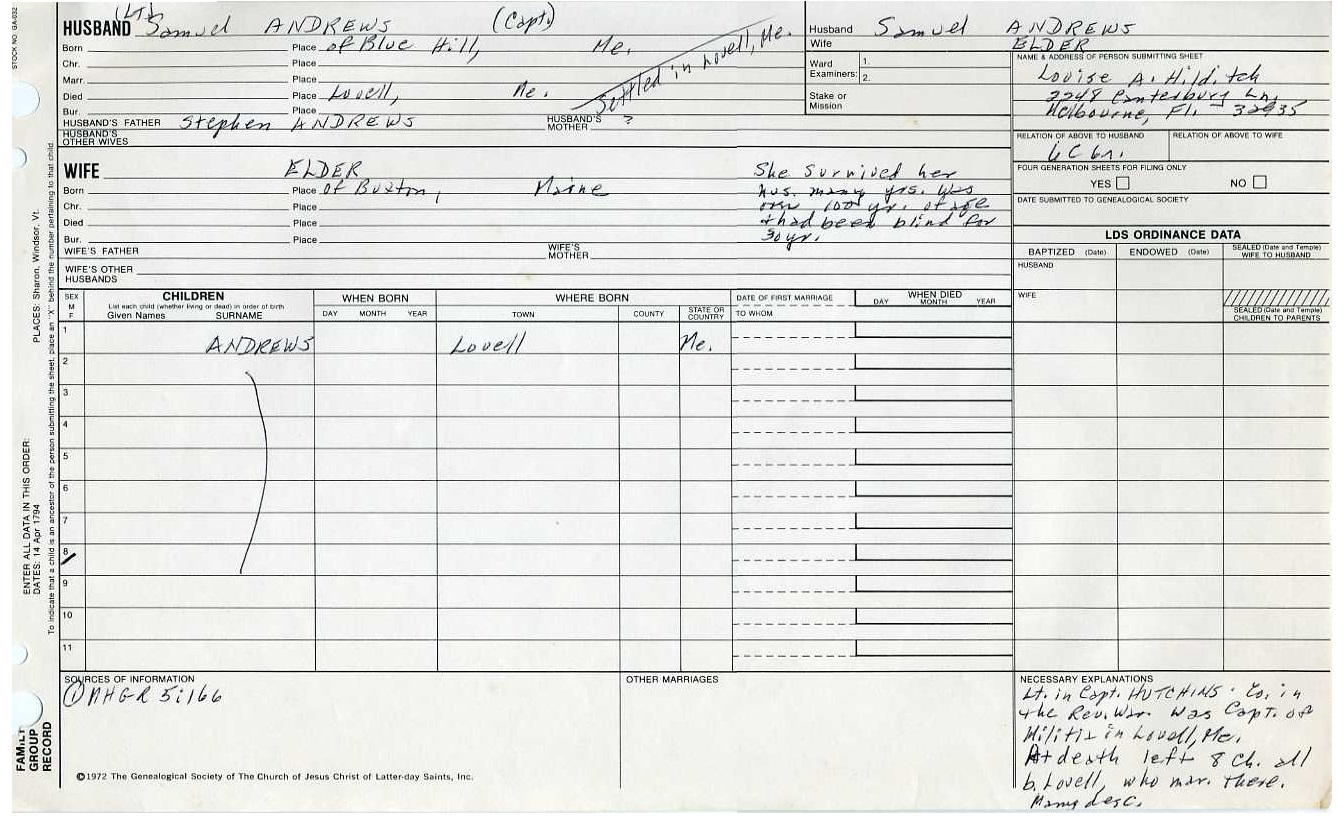 STOCK NO. GA-032
(Lt.)
HUSBAND Samuel ANDREWS (Capt.)
Born Place of Blue Hill, Me.
Chr. Place
Marr. Place
Died Place Lovell, Me.
Bur. Place
Settled in Lovell, Me.
HUSBAND'S FATHER Stephen ANDREWS HUSBAND'S MOTHER ?
HUSBAND'S OTHER WIVES
Husband Samuel ANDREWS
Wife ELDER
Ward Examiners: 1. 2.
Stake or Mission
NAME & ADDRESS OF PERSON SUBMITTING SHEET
Louise A. Hilditch
2248 Canterbury Ln.
Melbourne, Fl. 32935
RELATION OF ABOVE TO HUSBAND RELATION OF ABOVE TO WIFE
FOUR GENERATION SHEETS FOR FILING ONLY
YES NO
DATE SUBMITTED TO GENEALOGICAL SOCIETY
WIFE ELDER
Born Place of Buxton, Maine
Chr. Place
Died Place
Bur. Place
She survived her
hus. many yrs. Was
over 100 yr. of age
& had been blind for
30 yr.
WIFE'S FATHER WIFE'S MOTHER
WIFE'S OTHER HUSBANDS
LDS ORDINANCE DATA
BAPTIZED (Date) ENDOWED (Date) SEALED (Date and Temple) WIFE TO HUSBAND
HUSBAND
WIFE
SEALED (Date and Temple) CHILDREN TO PARENTS
SEX M F
CHILDREN
List each child (whether living or dead) in order of birth
Given Names SURNAME
WHEN BORN
DAY MONTH YEAR
WHERE BORN
TOWN COUNTY STATE OR COUNTRY
DATE OF FIRST MARRIAGE
TO WHOM
WHEN DIED
DAY MONTH YEAR
1 ANDREWS Lovell Me.
2
3
4
5
6
7
8
9
10
11
SOURCES OF INFORMATION
① NHGR 5:166
OTHER MARRIAGES
NECESSARY EXPLANATIONS
Lt. in Capt. HUTCHINS' Co. in
the Rev. War. Was Capt. of
Militia in Lovell, Me.
At death left 8 ch. all
b. Lovell, who mar. there.
Many desc.
©1972 The Genealogical Society of The Church of Jesus Christ of Latter-day Saints, Inc.
ENTER ALL DATA IN THIS ORDER:
DATES: 14 Apr 1794
PLACES: Sharon, Windsor, Vt.
To indicate that a child is an ancestor of the person submitting the sheet, place an "X" behind the number pertaining to that child.
FAMILY GROUP RECORD